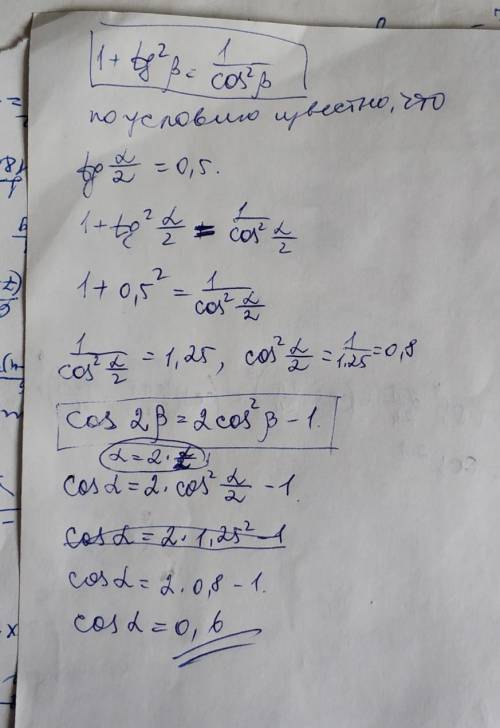 1 + tg²β = 1/cos²β
по условию известно, что
tg α/2 = 0,5.
1 + tg² α/2 = 1/cos² α/2
1 + 0,5² = 1/cos² α/2
1/cos² α/2 = 1,25, cos² α/2 = 1/1,25 = 0,8
cos 2β = 2cos²β - 1.
α = 2 · α/2
cos α = 2 · cos² α/2 - 1
cos α = 2 · 1,25² - 1
cos α = 2 · 0,8 - 1.
cos α = 0,6